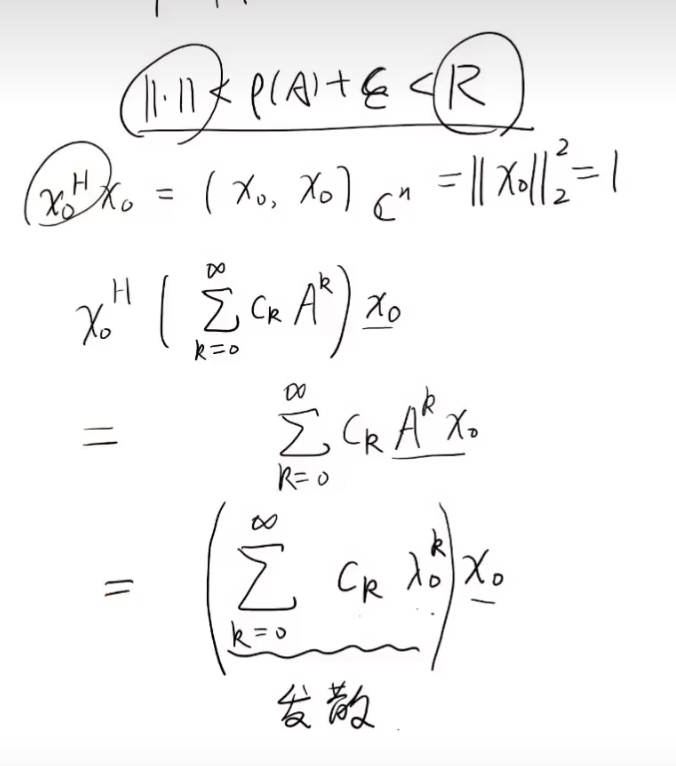 ‖·‖ < ρ(A) + ε < R
x₀ᴴ x₀ = (x₀, x₀)_{ℂⁿ} = ‖x₀‖₂² = 1
x₀ᴴ ( ∑_{k=0}^{∞} c_k A^k ) x₀
= ∑_{k=0}^{∞} c_k A^k x₀
= ( ∑_{k=0}^{∞} c_k λ₀^k ) x₀
发散